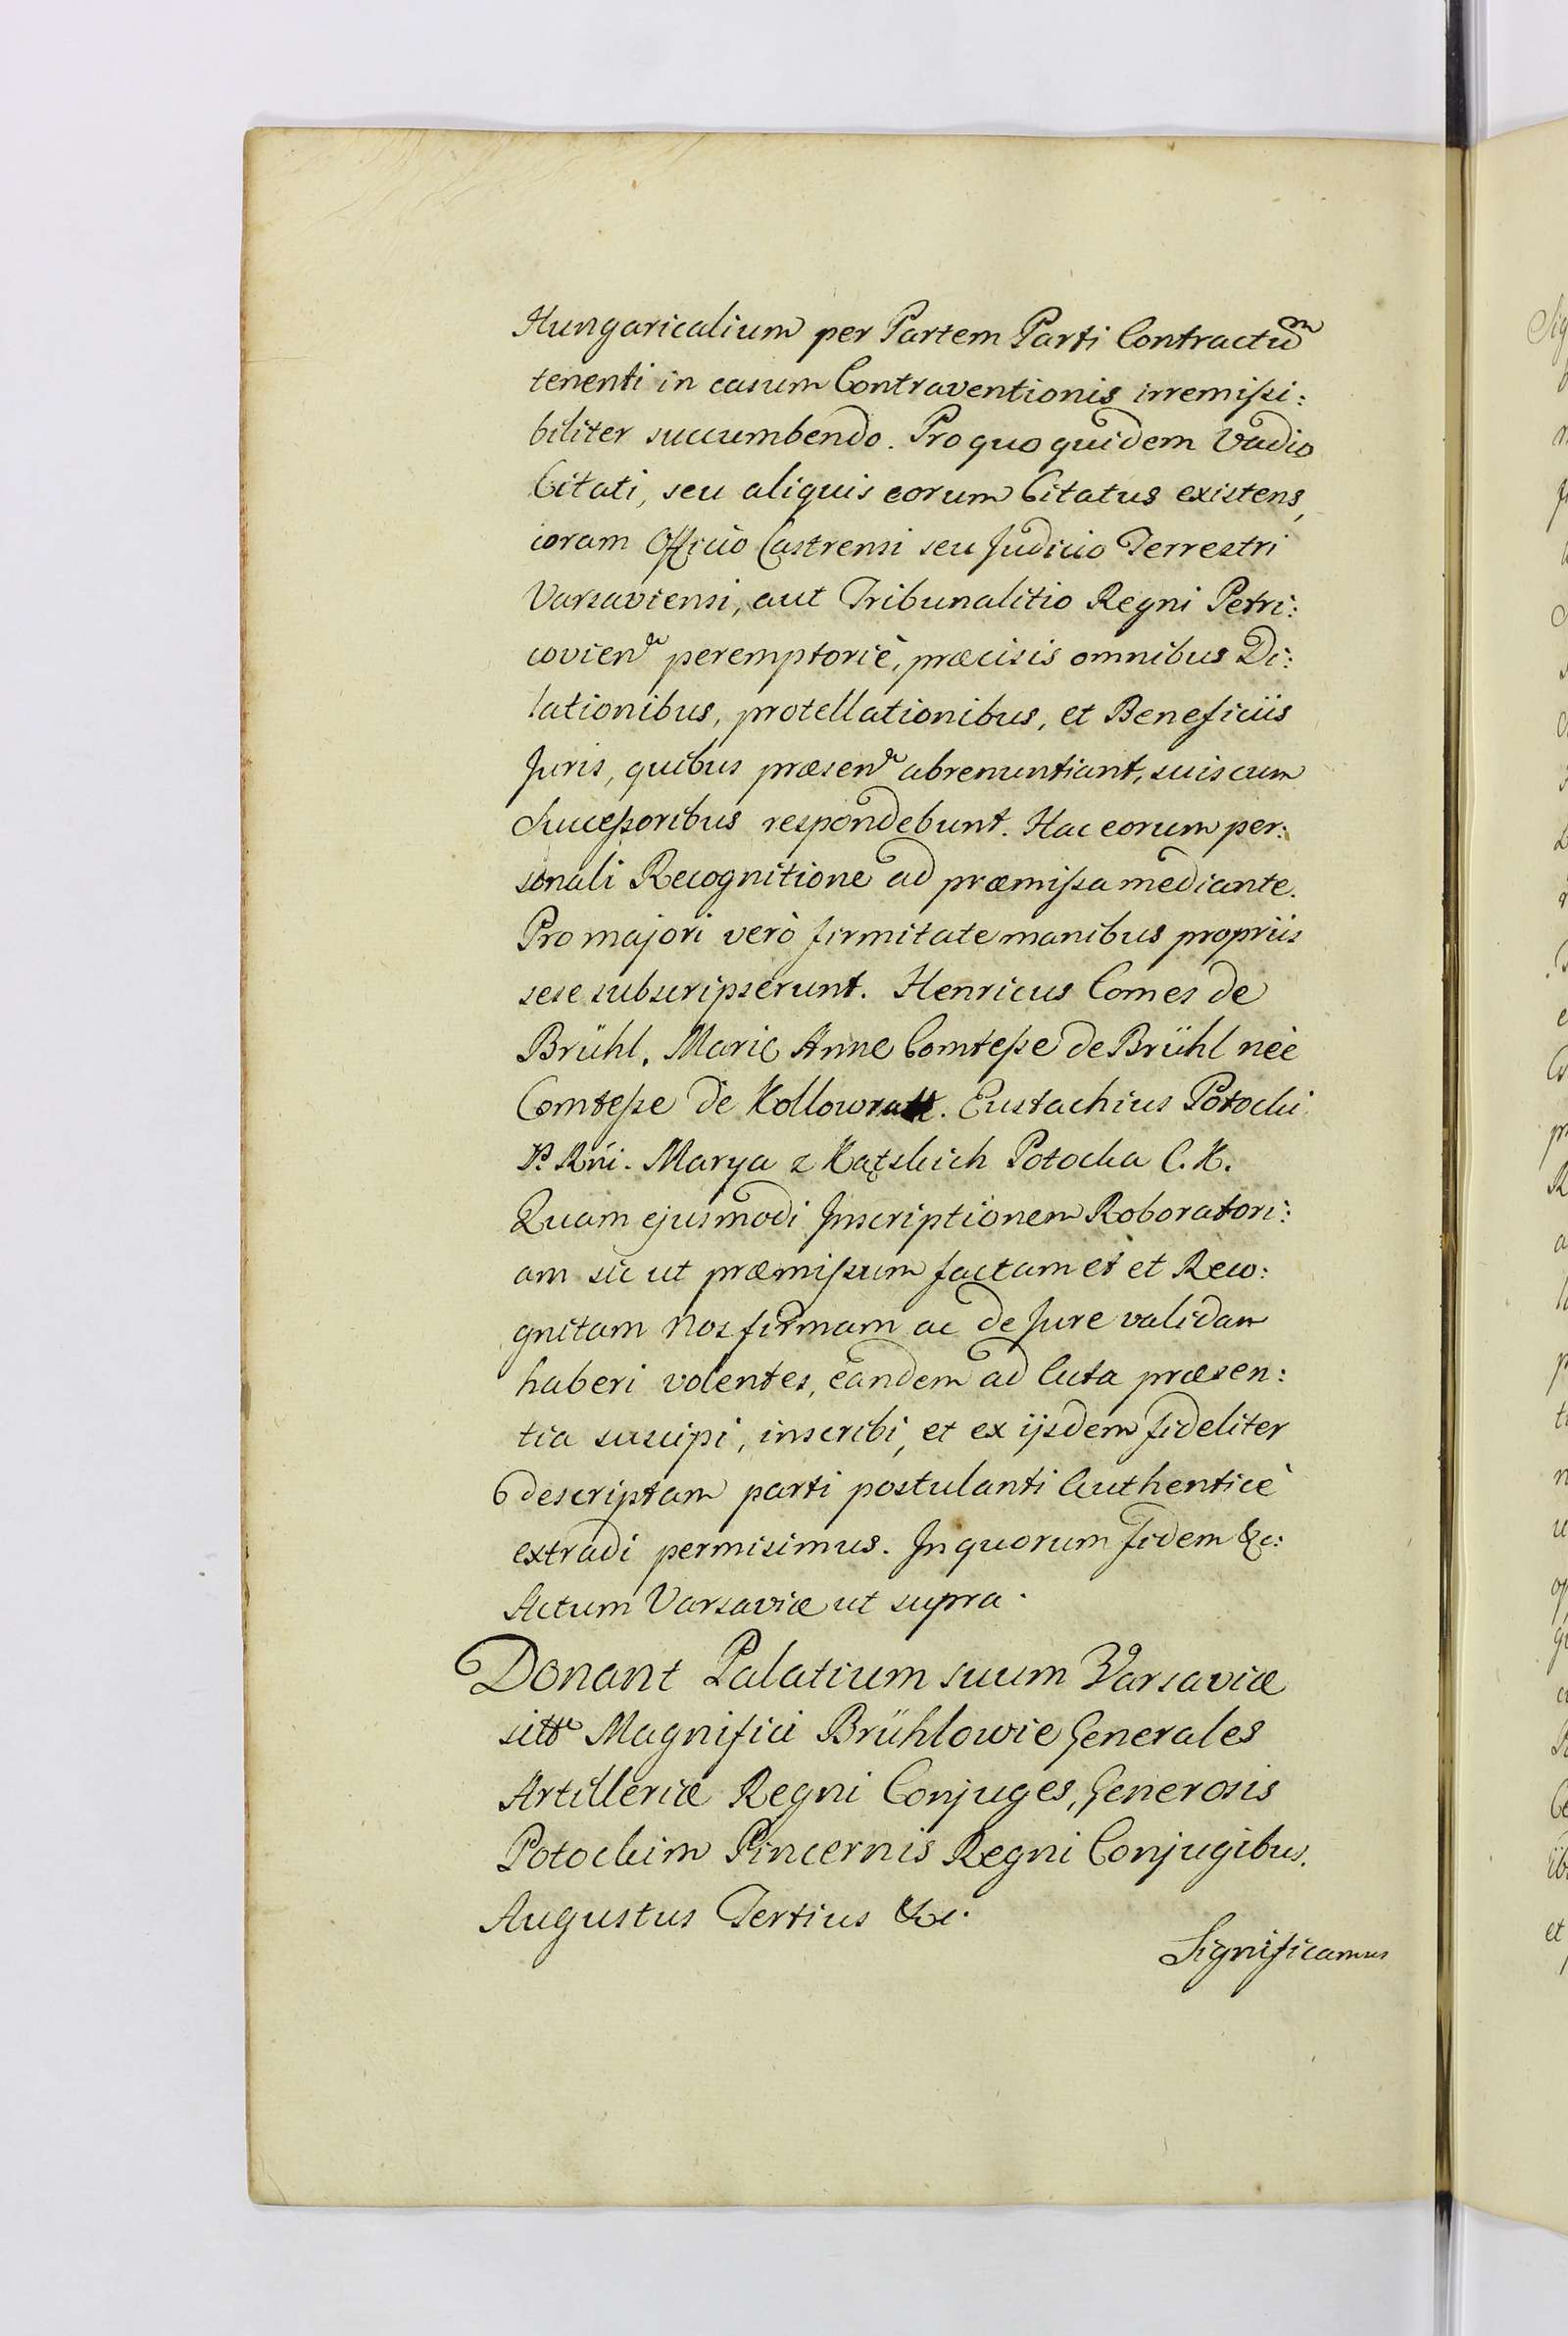 Hungaricalium per Partem Parti Contractũm
tenenti in casum Contraventionis irremissi:
biliter succumbendo. Pro quo quidem Vadio
Citati, seu aliquis eorum Citatus existens,
coram Officio Castrensi seu Judicio Terrestri
Varsaviensi, aut Tribunalitio Regni Petri:
covien. peremptoriè, præcisis omnibus Di:
lationibus, protellationibus, et Beneficiis
Juris, quibus præsen. abrenuntiant, suis cum
Successoribus respondebunt. Hac eorum per:
sonali Recognitione ad præmissa mediante.
Pro majori verò firmitate manibus propriis
sese subscripserunt. Henricus Comes de
Brühl. Marie Anne Comtesse de Brühl neè
Comtesse de Kollowratt. Eustachius Potocki
P. Rni. Marya z Kątskich Potocka C. K.
Quam ejusmodi Inscriptionem Roboratori:
am sic ut præmissum factam et et Reco:
gnitam Nos firmam ac de Jure validam
haberi volentes, eandem ad Acta præsen:
tia suscipi, inscribi, et ex ijsdem fideliter
descriptam parti postulanti Authenticè
extradi permisimus. In quorum fidem &c:
Actum Varsaviæ ut supra.
Donant Palatium suum Varsaviæ
sitt. Magnifici Brühlowie Generales
Artilleriæ Regni Conjuges, Generosis
Potockim Pincernis Regni Conjugibus.
Augustus Tertius &c.
Significamus